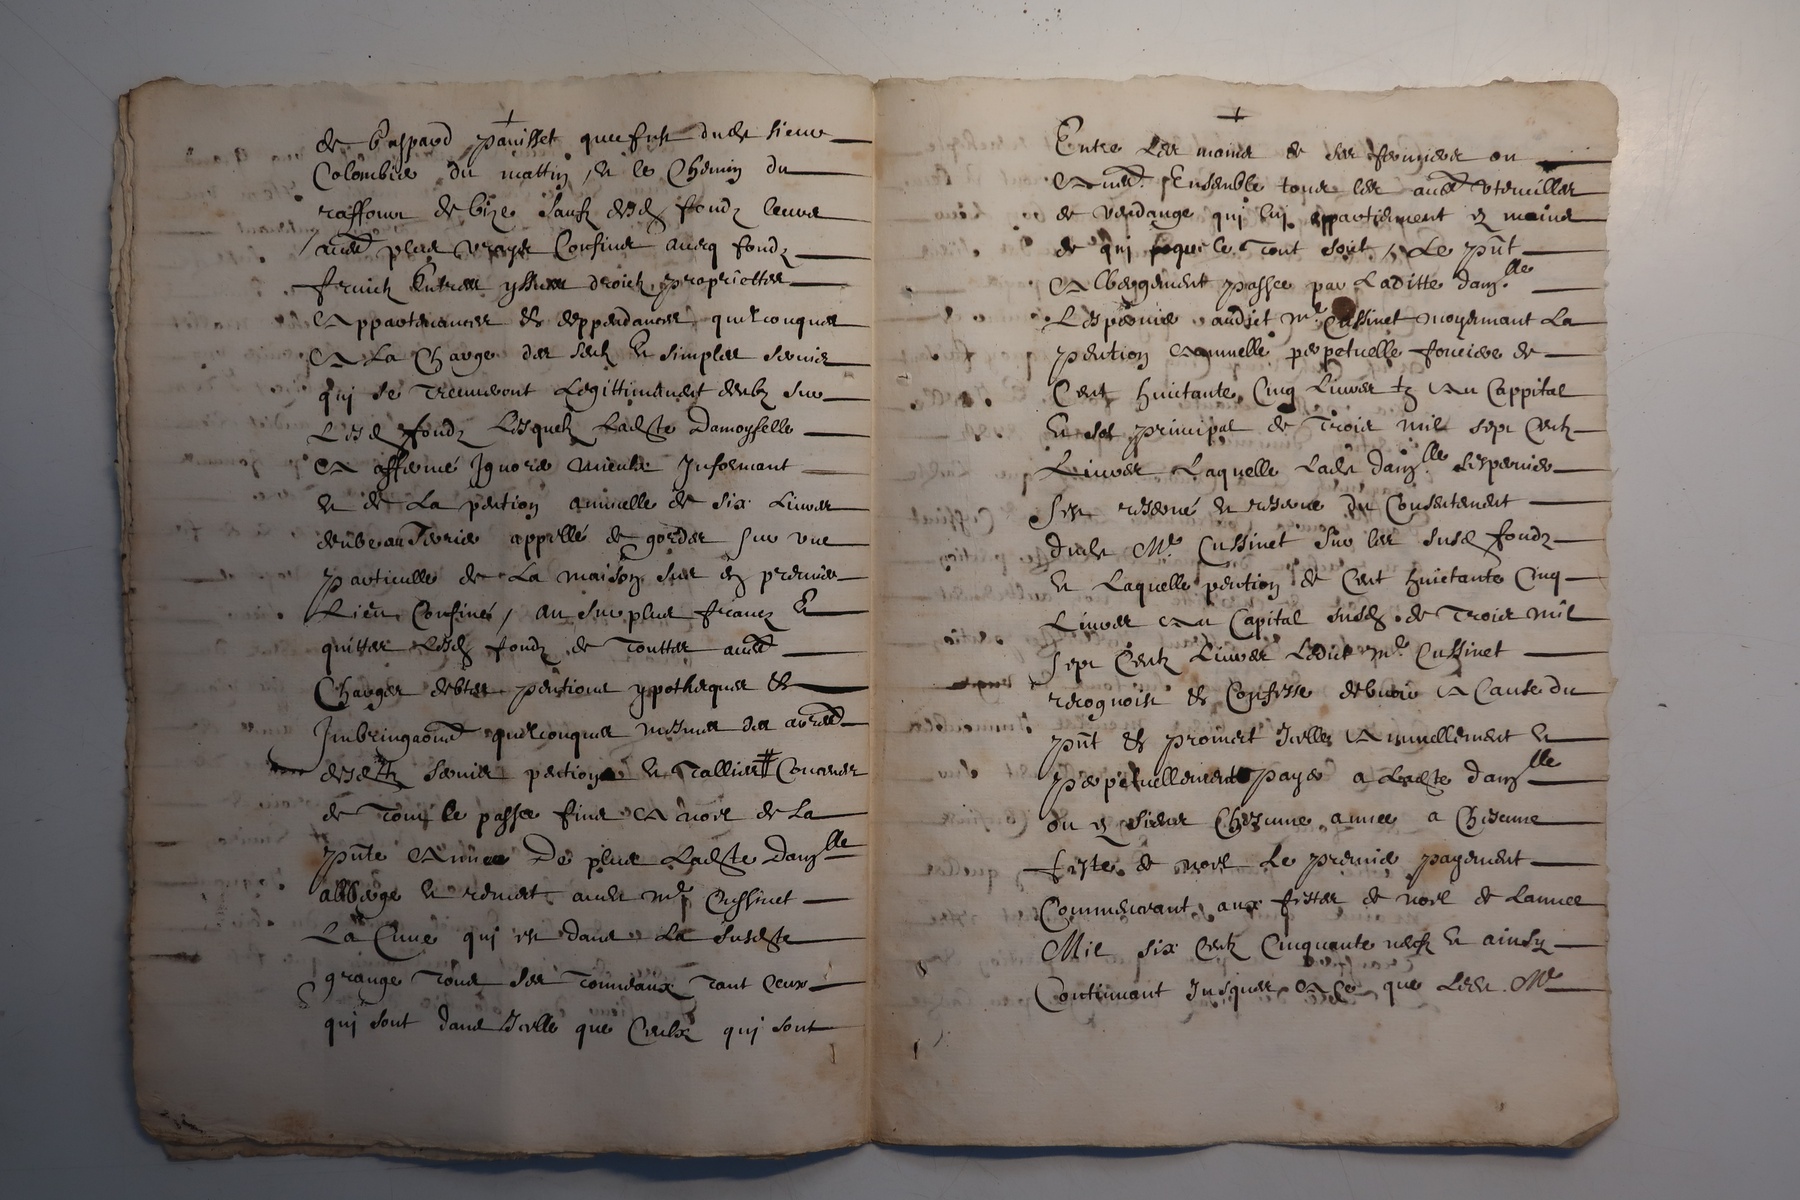 de Gaspard panisset que fust dudt sieur
Colombier du mattin, et le Chemin du
raffour de bize sauf desd fondz leurs
autres plus vrayes Confins avecq fondz
fruictz Entrees yssues droictz proprietter
Appartenances et deppendances quelconques
A La Charge des sertz et simples servis
qui se treuveront Legittimement deubz sur
Lesd fondz Lesquelz Ladte Damoyselle
A affermé Ignorer Informant
et de La pention annuelle de six Livres
deube au appellé de gordes sur une
particulle de La maison sus en premier
Lieu Confiné, au surplus francz et
quitter Lesd fondz de Touttes auttres
Charges debtes pentions ypotheques et
quelconques mesmes des arres
desdtz servis pention et Tallies #
de Tout le passé fins A noel de La
pnte Année De plus Ladte Damlle
alberge et remet audt mr Cussinet
La Cuve qui est dans La susdte
grange Tous ses Tonneaux Tant Ceux
qui sont dans Icelle que Ceulx qui sont
Entre Les mains de ses fermiers ou
Auttres Ensemble tous les autres utencilles
de vendange qui luy appartiennent es mains
de qui que ce Tout soit, Le pnt
Albergement passée par Laditte damlle
Lespervier audict mr Cussinet moyennant La
pention Annuelle perpetuelle fonciere de
Cent huictante Cinq Livres tz Au Cappital
et sol principal de Trois mil sept Centz
Livres Laquelle Ladte damlle Lespervier
sest reservé et reserve du Consentement
dudt Mr Cussinet sur les susd fondz
et Laquelle pention de Cent huictante Cinq
Livres Au Capital susd de Trois mil
sept Centz Livres Ledict mr Cussinet
recognoist et Confesse debvoir A Cause du
pnt et promet Icelles Annuellement et
perpetuellement payer a Ladte damlle
ou es siens Chesune annee a Chesune
feste de noel Le premier payement
Commencant aux festes de noel de Lannee
Mil six Centz Cinquante neuf et ainsy
Continuant Jusques A Ce que Ledt Mr